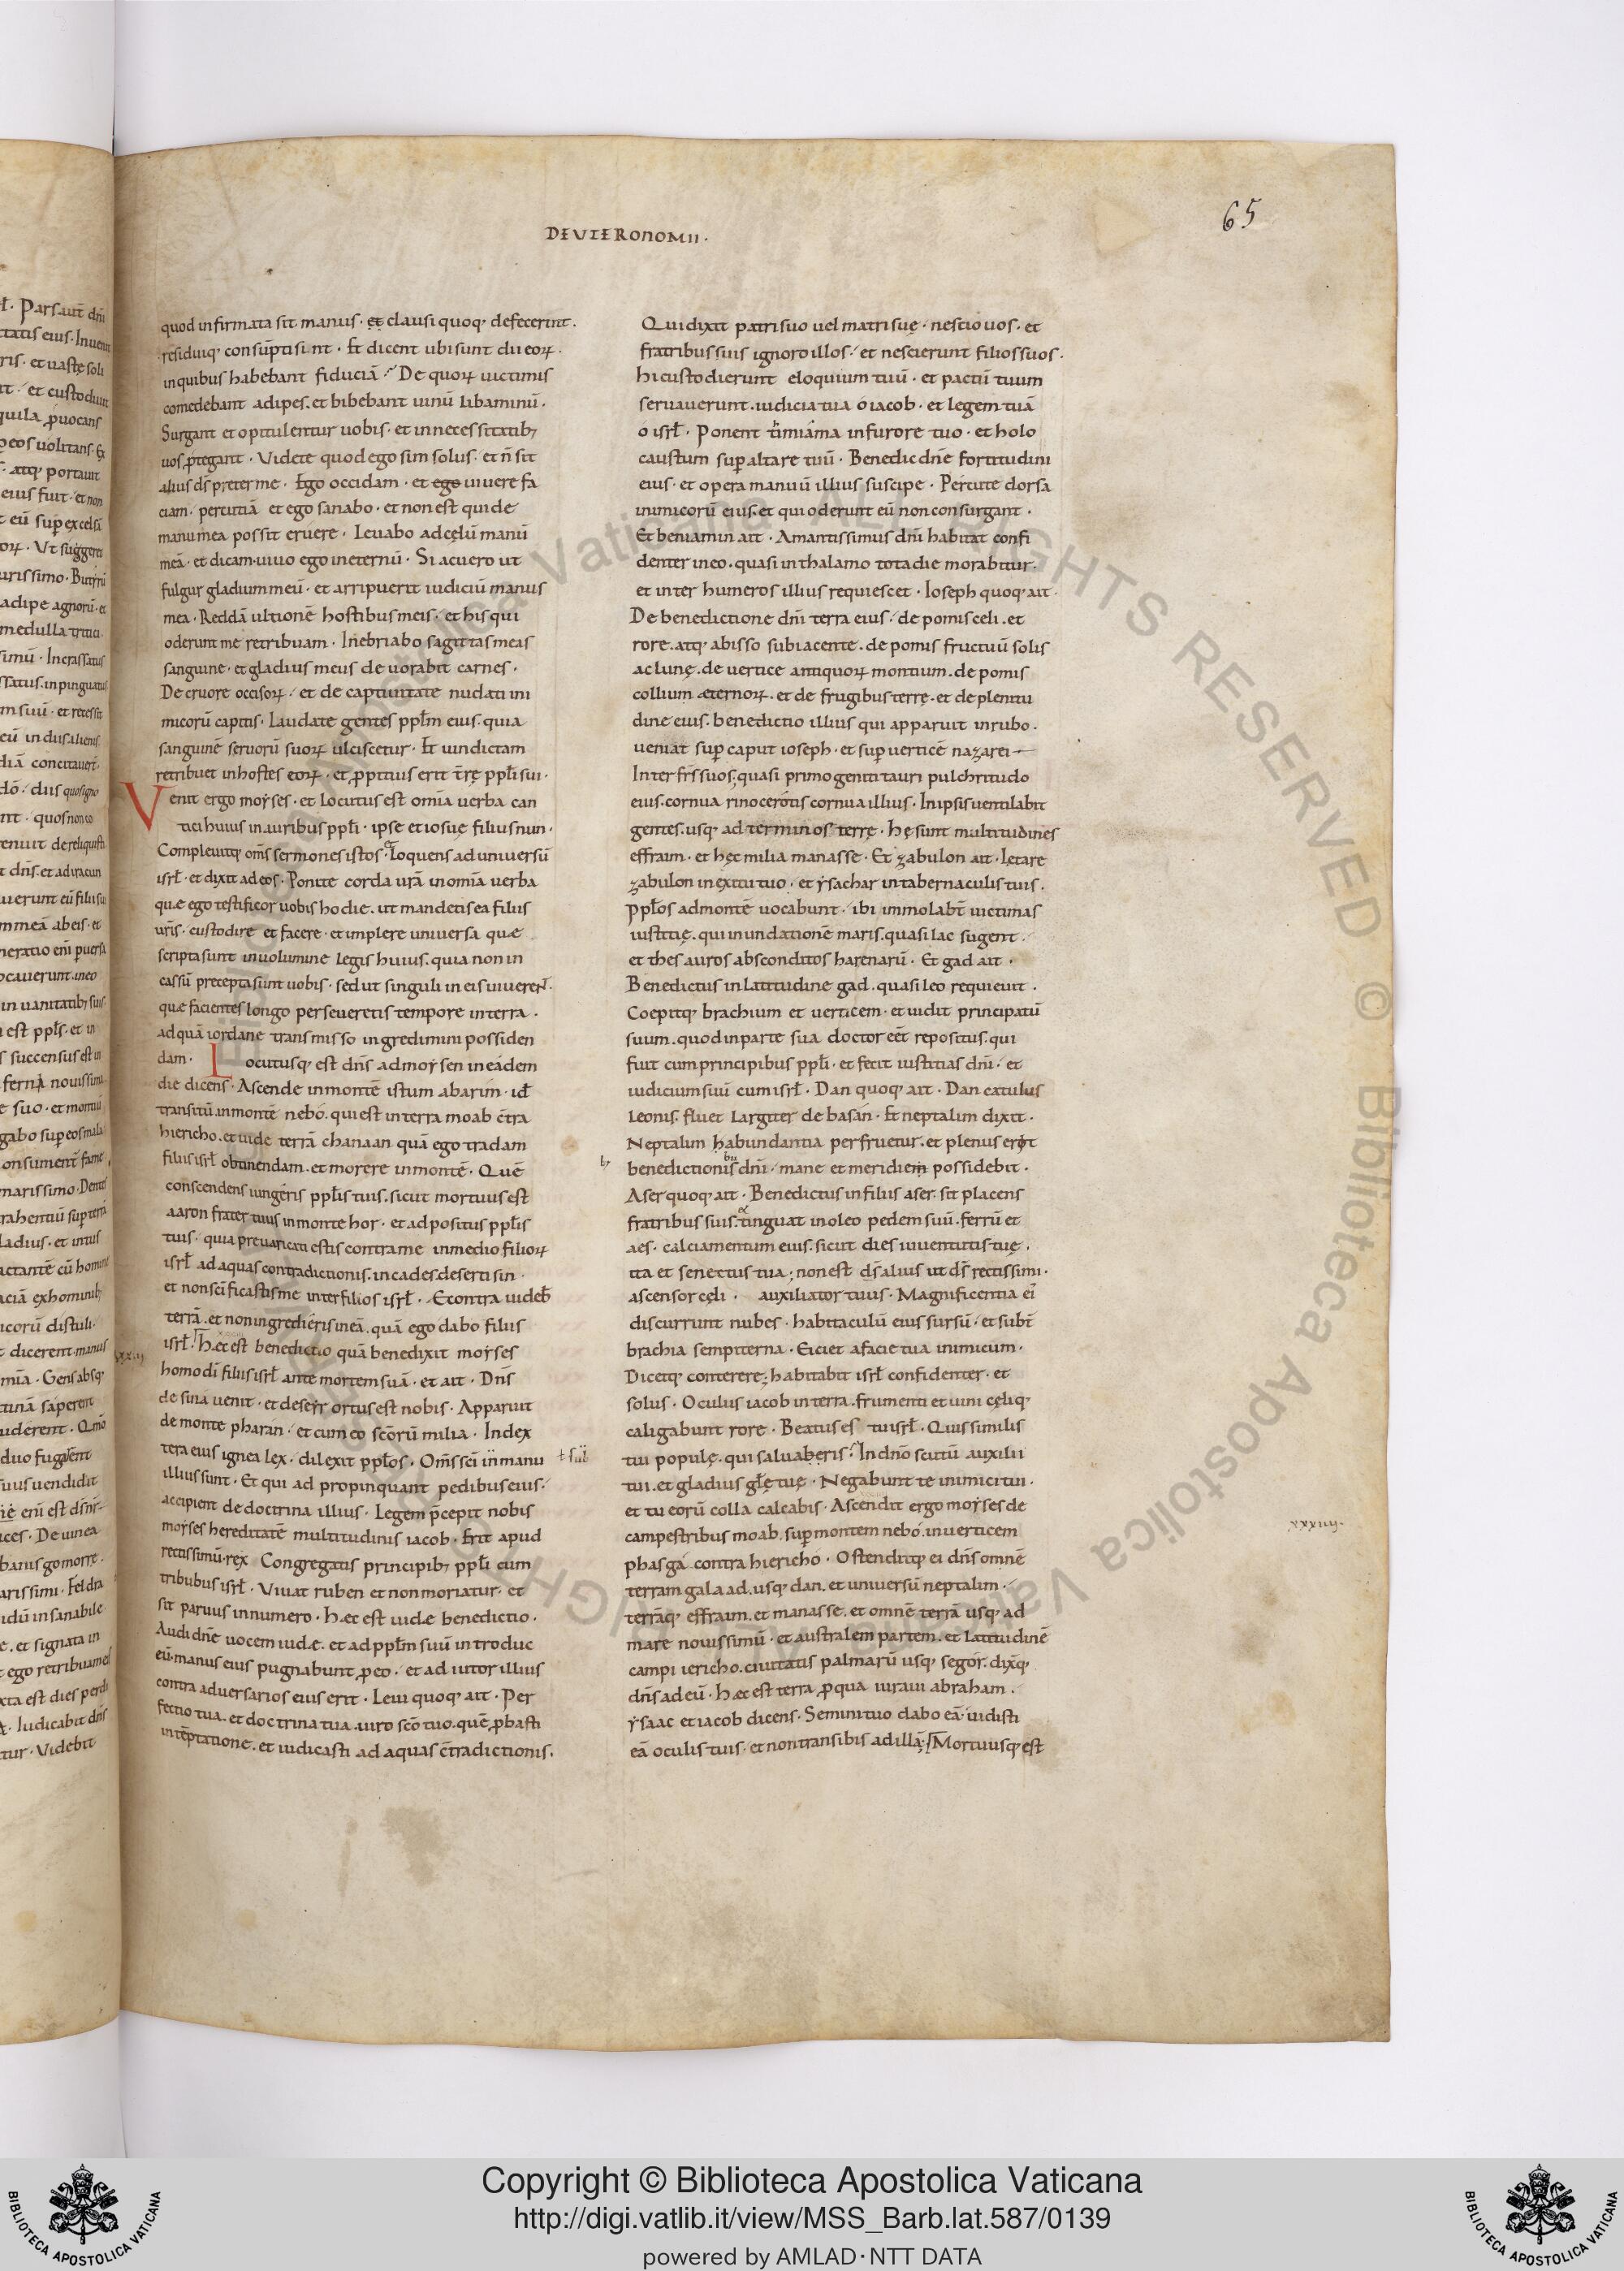 DEUTERONOMII·
65
quod infirmata sit manus· et clausi quoq; defecerint·
residuiq; consūpti sint· Et dicent ubi sunt dii eoꝝ·
in quibus habebant fiduciā· De quoꝝ uictimis
comedebant adipes· et bibebant uinū libaminū·
Surgant et opitulentur uobis· et in necessitatib;
uos ꝓtegant· Videte quod ego sim solus· et ñ sit
alius ds̄ preter me· Ego occidam· et ego uiuere fa
ciam· percutiā et ego sanabo· et non est qui de
manu mea possit eruere· Levabo ad cęlū manū
meā· et dicam· uiuo ego in eternū· Si acuero ut
fulgur gladium meū· et arripuerit iudiciū manus
mea· Reddā ultionē hostibus meis· et his qui
oderunt me retribuam· Inebriabo sagittas meas
sanguine· et gladius meus deuorabit carnes·
De cruore occisoꝝ· et de captiuitate nudati ini
micorū capitis· Laudate gentes ppl̄m eius· quia
sanguinē seruorū suoꝝ ulciscetur· Et uindictam
retribuet in hostes eoꝝ· et ꝓpitius erit t̄rę ppl̄i sui·
Venit ergo moẏses· et locutus est omīa uerba can
tici huius in auribus ppl̄i· ipse et iosuę filius nun·
Compleuitq; om̄s sermones istos· Loquens ad uniuersū
isrł· et dixit ad eos· Ponite corda ur̄a in omīa uerba
quæ ego testificor uobis hodie· ut mandetis ea filiis
ur̄is· custodire et facere· et implere uniuersa quæ
scripta sunt in uolumine legis huius· quia non in
cassū precepta sunt uobis· sed ut singuli in eis uiuerent·
quæ facientes longo perseueretis tempore in terra·
ad quā iordane transmisso ingredimini possiden
dam· Locutusq; est dn̄s ad moẏsen in eadem
die dicens· Ascende in montē istum abarim· id ē
transitū in montē nebo· qui est in terra moab c̄tra
hiericho· et uide terrā chanaan quā ego tradam
filiis isrł obtinendam· et morere in montē· Quē
conscendens iungeris ppl̄is tuis· sicut mortuus est
aaron frater tuus in monte hor· et adpositus ppl̄is
tuis· quia preuaricati estis contra me in medio filioꝝ
isrł ad aquas contradictionis· in cades deserti sin·
et non sc̄ificastis me inter filios isrł· E contra uidebis
terrā· et non ingredieris in eā· quā ego dabo filiis
xxxiii
isrł· Hæc est benedictio quā benedixit moẏses
homo dī filiis isrł ante mortem suā· et ait· Dn̄s
de sina uenit· et de seẏr ortus est nobis· Apparuit
de monte pharan· et cum eo sc̄orū milia· In dex
tera eius ignea lex· dilexit ppl̄os· Om̄s sc̄i in manu
illius sunt· Et qui adpropinquant pedibus eius·
accipient de doctrina illius· Legem p̄cepit nobis
moẏses hereditatē multitudinis iacob· Erit apud
rectissimū rex Congregatis principib; ppl̄i cum
tribubus isrł· Viuat ruben et non moriatur· et
sit paruus in numero· Hæc est iudæ benedictio·
Audi dn̄e uocem iudæ· et ad ppl̄m suū introduc
eū· manus eius pugnabunt ꝓ eo· et adiutor illius
contra aduersarios eius erit· Leui quoq; ait· Per
fectio tua· et doctrina tua· uiro sc̄o tuo· quē ꝓbasti
in tēptatione· et iudicasti ad aquas c̄tradictionis·
Qui dixit patri suo uel matri suę· nescio uos· et
fratribus suis ignoro illos· et nescierunt filios suos·
hi custodierunt eloquium tuū· et pactū tuum
seruauerunt· iudicia tua o iacob· et legem tuā
o isrł· Ponent timiama in furore tuo· et holo
caustum sup̄ altare tuū· Benedic dn̄e fortitudini
eius· et opera manuū illius suscipe· Percute dorsa
inimicorū eius· et qui oderunt eū non consurgant·
Et beniamin ait· Amantissimus dn̄i habitat confi
denter in eo· quasi in thalamo tota die morabitur·
et inter humeros illius requiescet· Ioseph quoq; ait·
De benedictione dn̄i terra eius· de pomis celi· et
rore· atq; abisso subiacente· de pomis fructuū solis
ac lunę· de uertice antiquoꝝ montium· de pomis
collium æternoꝝ· et de frugibus terrę· et de plenitu
dine eius· benedictio illius qui apparuit in rubo·
ueniat sup̄ caput ioseph· et sup̄ uerticē nazarei
Inter fr̄s suos· quasi primogeniti tauri pulchritudo
eius· cornua rinocerotis cornua illius· In ipsis uentilabit
gentes· usq; ad terminos terrę· Hę sunt multitudines
effraim· et hęc milia manasse· Et zabulon ait· Lętare
zabulon in exitu tuo· et ẏsachar in tabernaculis tuis·
Ppl̄os ad montē uocabunt· ibi immolabt̄ uictimas
iustitię· qui inundationē maris· quasi lac sugent·
et thesauros absconditos harenarū· Et gad ait·
Benedictus in latitudine gad· quasi leo requieuit·
Coepitq; brachium et uerticem· et uidit principatū
suum· quod in parte sua doctor eēt repositus· qui
fuit cum principibus ppl̄i· et fecit iustitias dn̄i· et
iudicium suū cum isrł· Dan quoq; ait· Dan catulus
leonis· fluet largiter de basan· Et neptalim dixit·
Neptalim habundantia perfruetur· et plenus erit
benedictionis dn̄i· mane et meridiem possidebit·
Aser quoq; ait· Benedictus in filiis aser· sit placens
fratribus suis· tinguat in oleo pedem suū· ferrū et
aes· calciamentum eius· sicut dies iuuentutis tuę·
ita et senectus tua· non est ds̄ alius ut ds̄ rectissimi·
ascensor cęli· auxiliator tuus· Magnificentia ei
discurrunt nubes· habitaculū eius sursū· et subt̄
brachia sempiterna· Eiciet a facie tua inimicum·
Dicetq; conterere· habitabit isrł confidenter· et
solus· Oculus iacob in terra· frumenti et uini cęliq;
caligabunt rore· Beatus es tu isrł· Quis similis
tui populę· qui saluaberis· In dn̄o scutū auxilii
tui· et gladius gl̄ę tuę· Negabunt te inimici tui·
et tu eorū colla calcabis· Ascendit ergo moẏses de
campestribus moab· sup̄ montem nebo· in uerticem
phasga· contra hiericho· Ostenditq; ei dn̄s omnē
xxxiiij·
terram galaad· usq; dan· et uniuersū neptalim·
terrāq; effraim· et manasse· et omnē terrā usq; ad
mare nouissimū· et australem partem· et latitudinē
campi iericho· ciuitatis palmarū usq; segor· dixq;
dn̄s ad eū· Hæc est terra ꝓ qua iuraui abraham·
ẏsaac et iacob dicens· Semini tuo dabo eā· uidisti
eā oculis tuis· et non transibis ad illā· Mortuusq; est
Copyright © Biblioteca Apostolica Vaticana
http://digi.vatlib.it/view/MSS_Barb.lat.587/0139
powered by AMLAD·NTT DATA